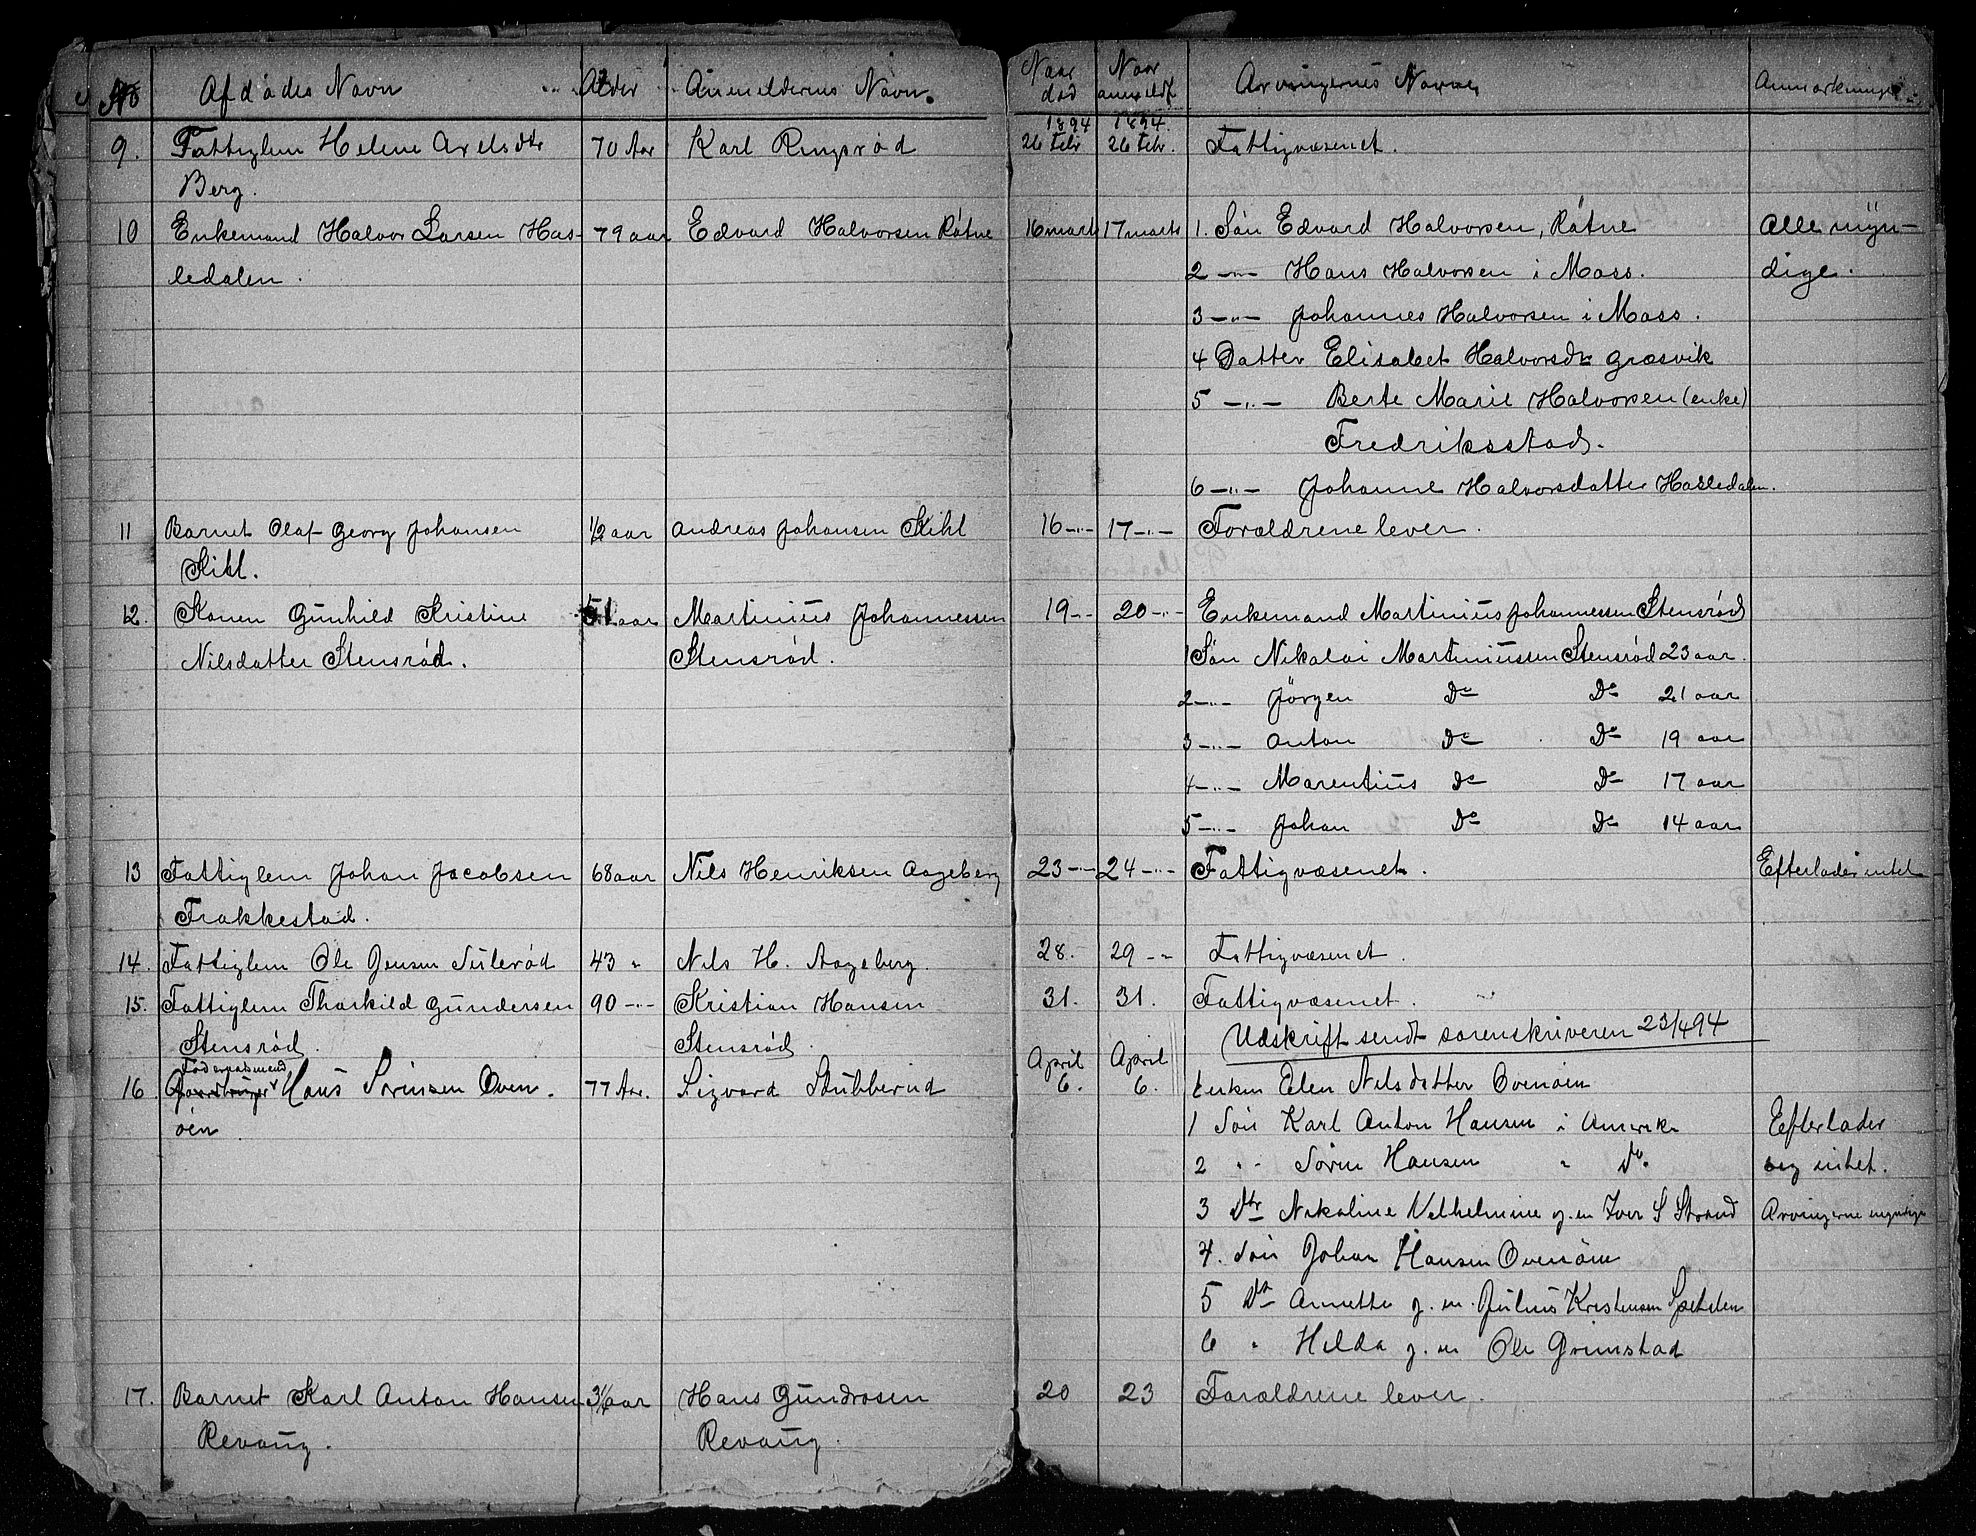 No Afdødes Navn Alder Anmelderens Navn. Naar død Naar anmeldt Arvingernes Navne Anmærkninger
1894 1894
9. Fattiglem Helene Axelsdtr 70 Aar Karl Ringsrød 26 Febr 26 Febr. Fattigvæsenet.
Berg.
10 Enkemand Halvor Larsen Has- 79 aar Edvard Halvorsen Røtne 16 marts 17 marts 1. Søn Edvard Halvorsen, Røtne Alle myn-
ledalen. 2 -"- Hans Halvorsen i Moss. dige.
3 -"- Johannes Halvorsen i Moss.
4 Datter Elisabet Halvorsdtr Græsvik
5 -"- Berte Marie Halvorsen (enke)
Fredriksstad.
6 -"- Johanne Halvorsdatter Hasledalen.
11 Barnet Olaf Georg Johansen 1/2 aar Andreas Johansen Kihl 16 -"- 17 -"- Forældrene lever.
Kihl.
12. Konen Gunhild Kristine 51 aar Martinius Johannessen 19 -"- 20 -"- Enkemand Martinius Johannessen Stensrød
Nilsdatter Stensrød. Stensrød. 1 Søn Nikolai Martiniussen Stensrød 23 aar.
2 -"- Jörgen Do Do 21 aar
3 -"- Anton Do Do 19 aar
4 -"- Marentius Do Do 17 aar
5 -"- Johan Do Do 14 aar
13 Fattiglem Johan Jacobsen 68 aar Nils Henriksen Aageberg 23 -"- 24 -"- Fattigvæsenet. Efterlader intet
Frakkestad.
14. Fattiglem Ole Jensen Sulerød 43 " Nils H. Aageberg 28. 29 -"- Fattigvæsenet.
15. Fattiglem Thorkild Gundersen 90 -"- Kristian Hansen 31. 31. Fattigvæsenet.
Stensrød. Stensrød. Udskrift sendt sorenskriveren 23/4 94
Föderaadsmand April April
16. Gaardbruger Hans Sørensen Oven. 77 Aar. Sigvard Stubberud 6. 6. Enken Elen Nilsdatter Ovenøen
øen. 1 Søn Karl Anton Hansen i Amerika Efterlader
2 " Søren Hansen " Do. sig intet.
3 Dtr Nikoline Vilhelmine g. m Iver S Strand Arvingerne myndige
4. Søn Johan Hansen Ovenøen
5 Dtr Annette g. m. Julius Kristensen Spetalen
6 " Hilda g. m Ole Grimstad
17. Barnet Karl Anton Hansen 3 1/4 aar Hans Gundrosen 20 23 Forældrene lever.
Revaug. Revaug.